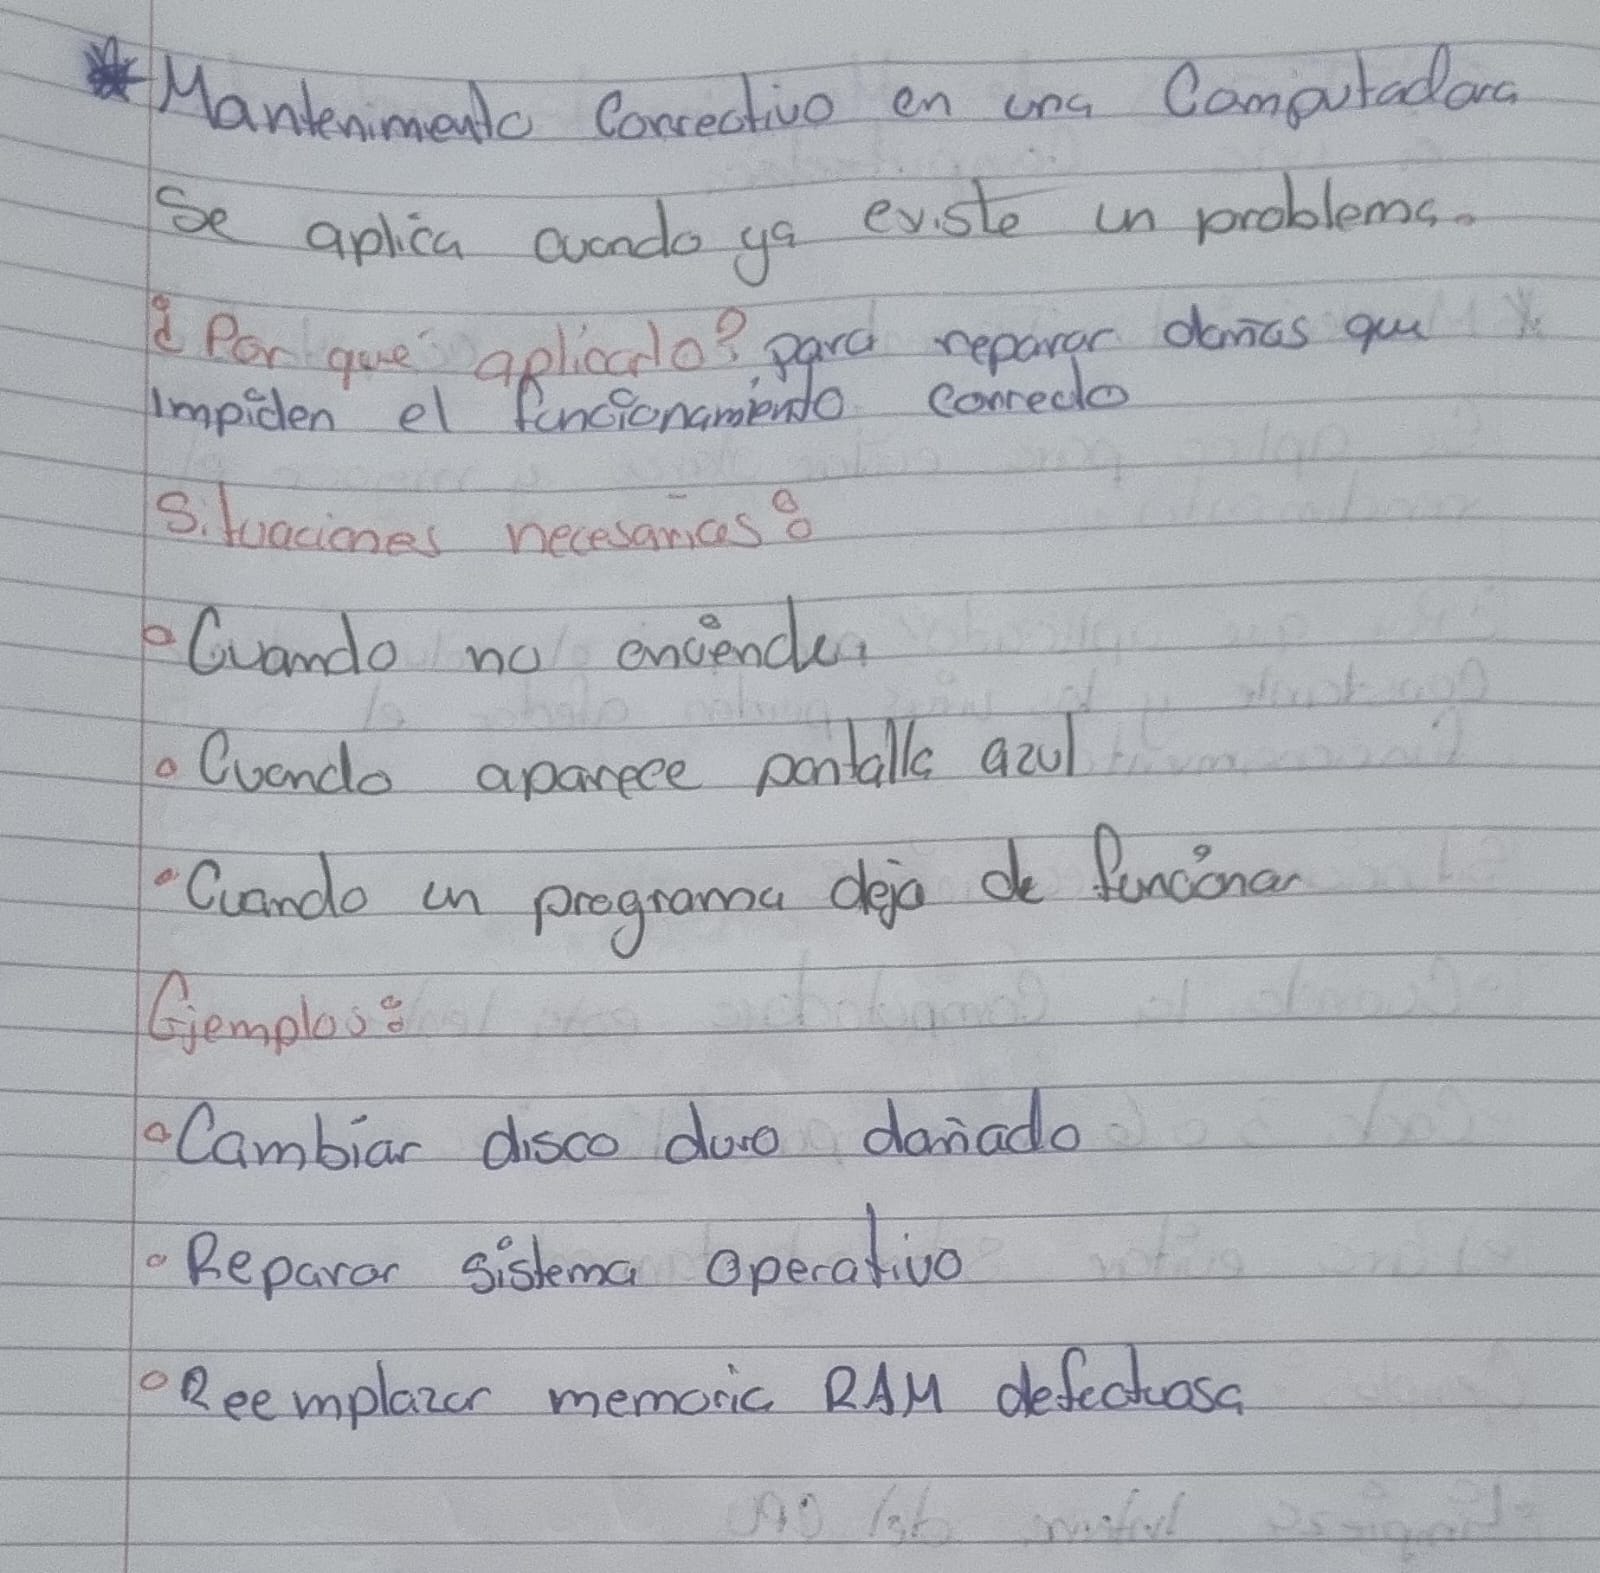 * Mantenimento Correctivo en una Computadora
Se aplica cuando ya existe un problema.
¿Por que aplicarlo? para reparar daños que
impiden el funcionamiento correcto
Situaciones necesarias:
• Cuando no enciende.
• Cuando aparece pantalla azul
• Cuando un programa deja de funcionar
Ejemplos:
• Cambiar disco duro dañado
• Reparar sistema operativo
• Reemplazar memoria RAM defectuosa